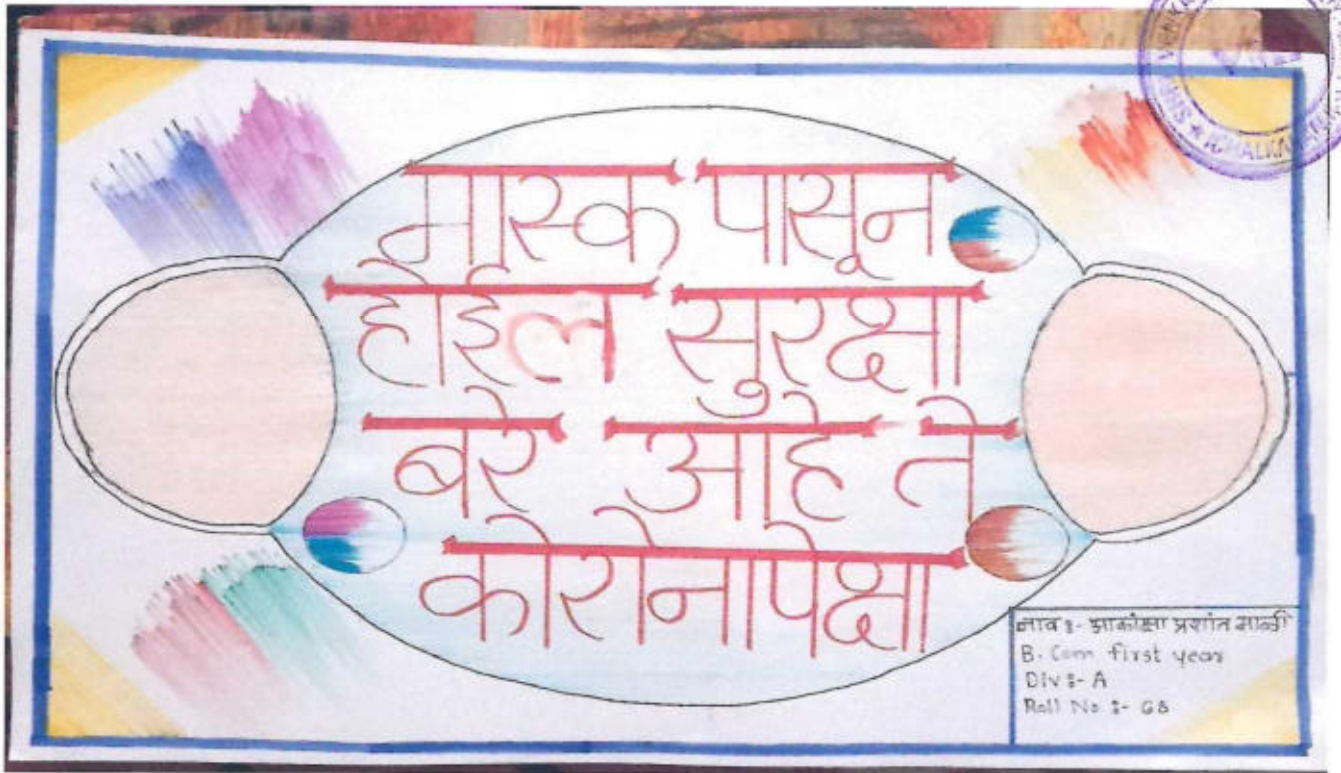 मास्क पासून
होईल सुरक्षा
बरे आहे ते
कोरोनापेक्षा
नाव :- आकांक्षा प्रशांत माळी
B. Com first year
Div :- A
Roll No :- 68